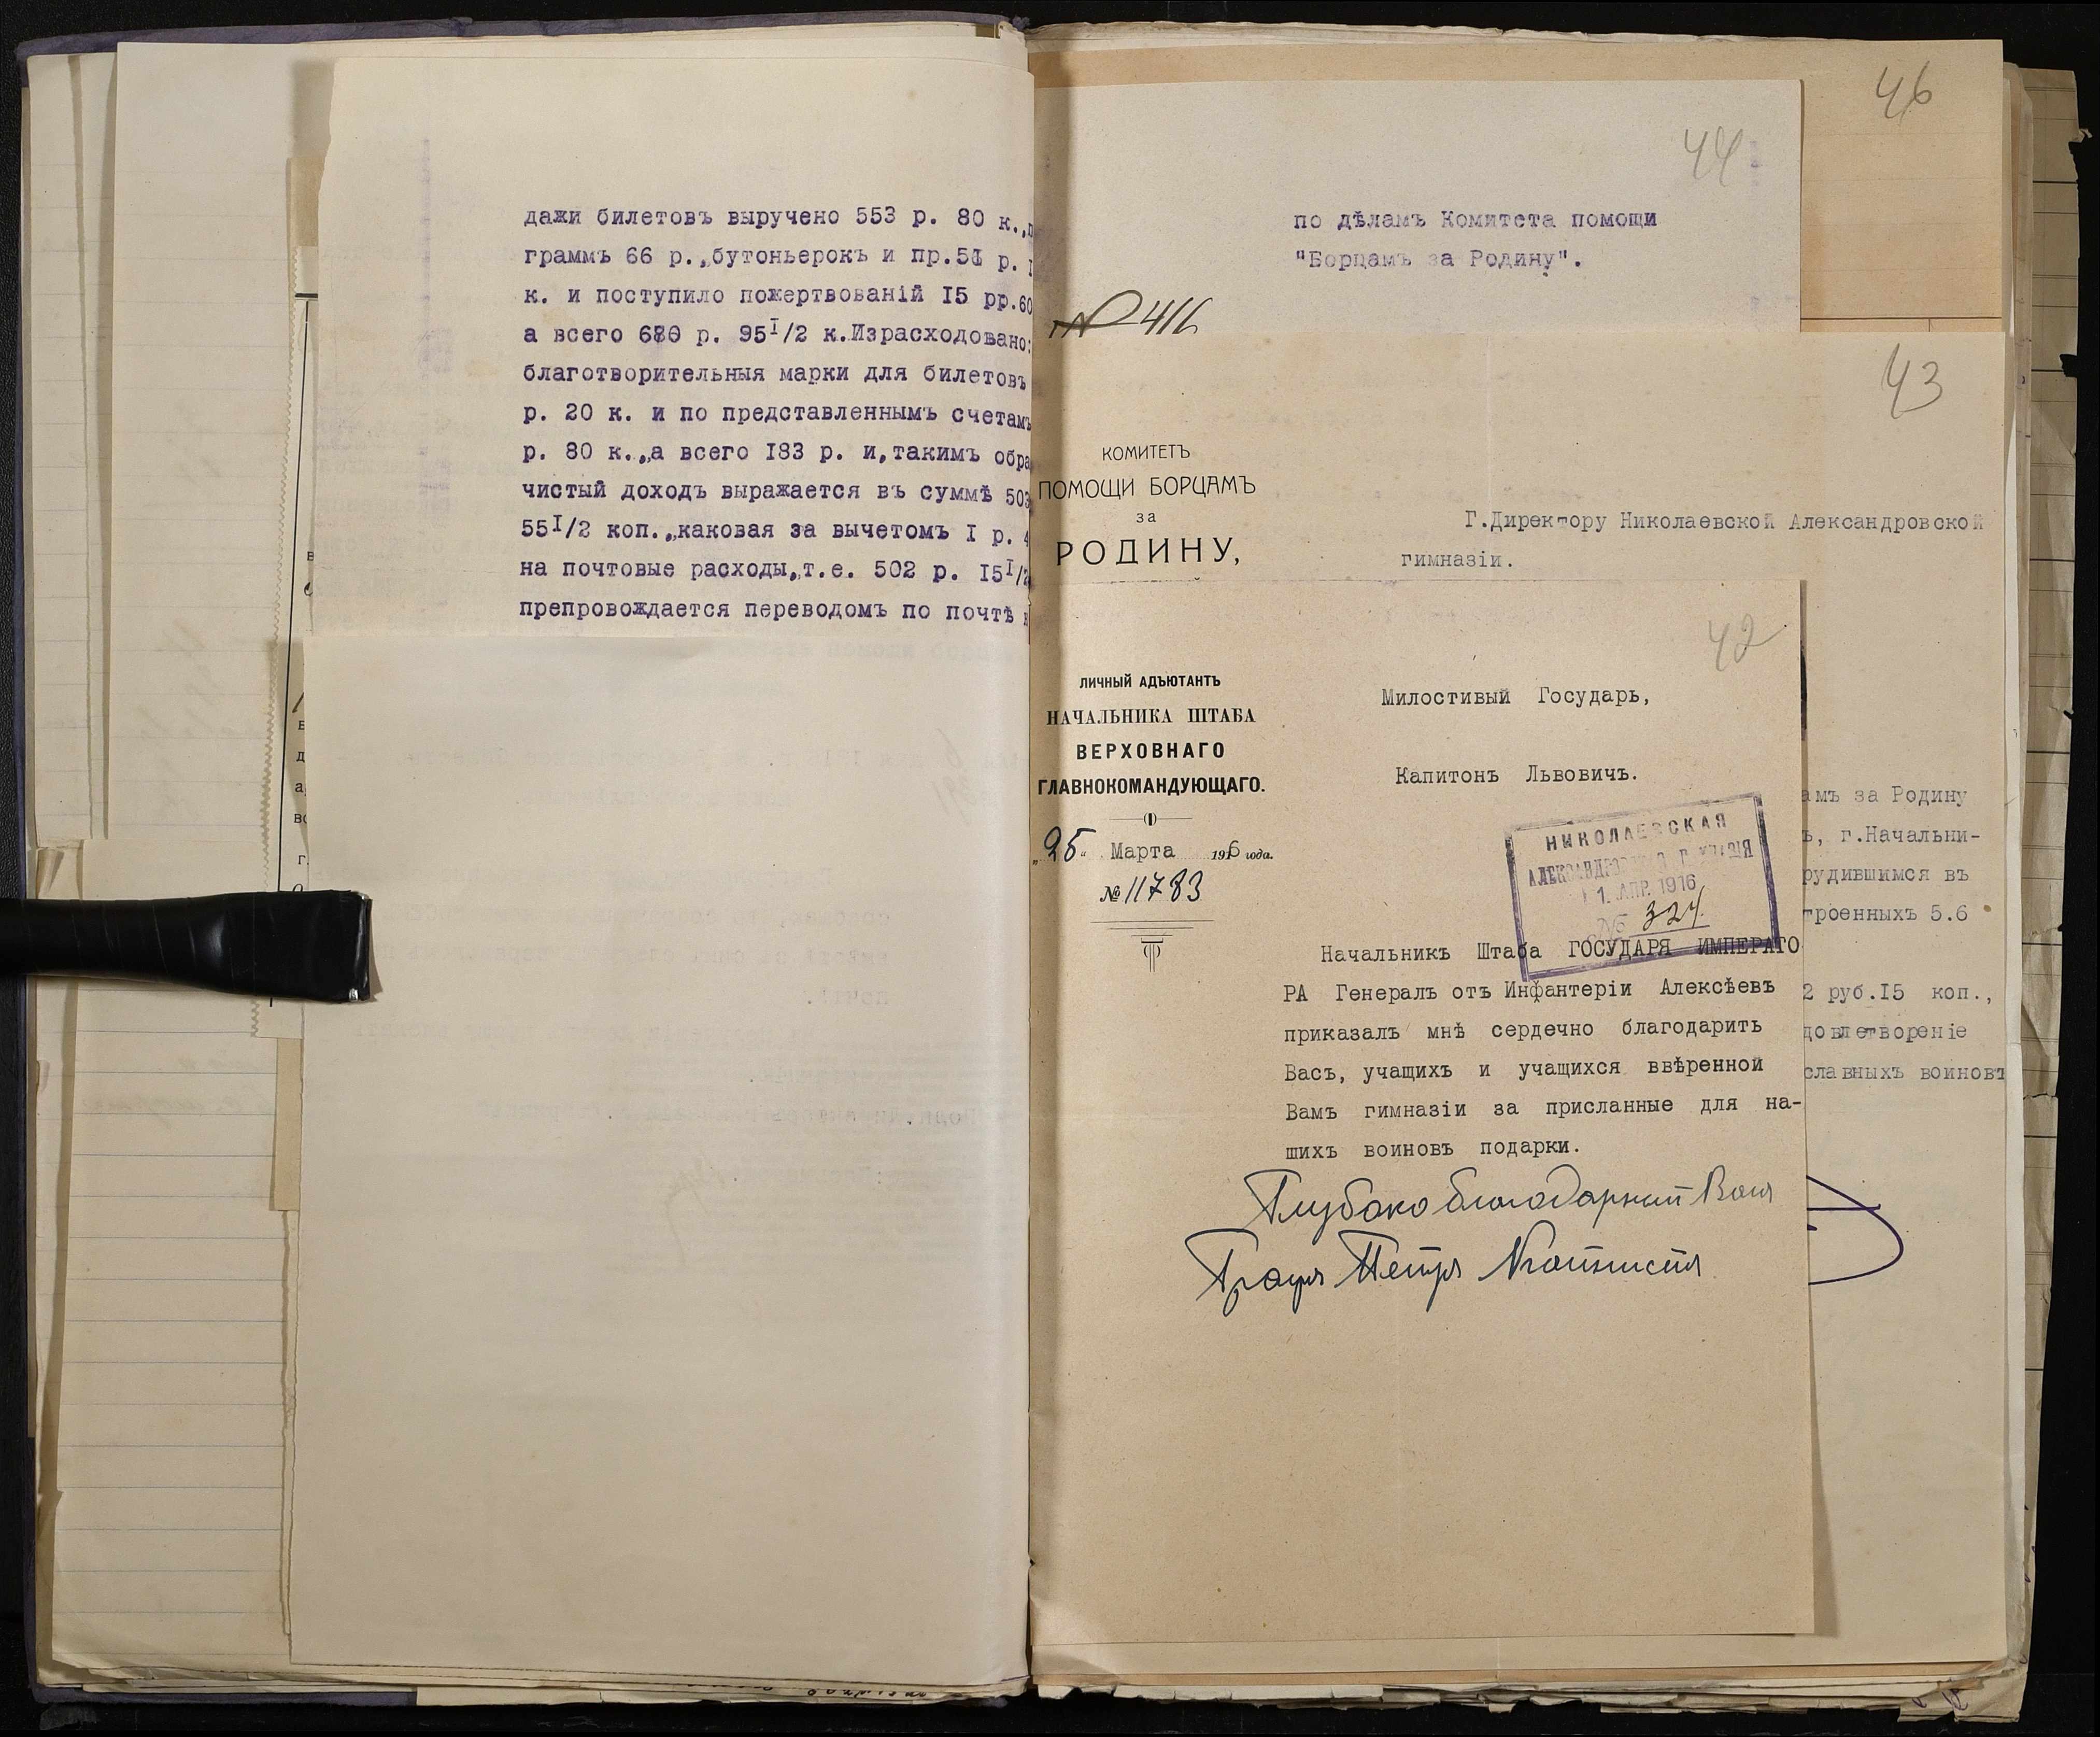 дажи билетовъ выручено 553 р. 80 к.,
граммъ 66 р.,бутоньерокъ и пр.51 р.
к. и поступило пожертвованій I5 рр.60
а всего 680 р. 95I/2 к.Израсходовано:
благотворительныя марки для билетовъ
р. 20 к. и по представленнымъ счетамъ
р. 80 к.,а всего I83 р. и,такимъ обра
чистый доходъ выражается въ суммѣ 503
55I/2 коп.,каковая за вычетомъ I р. 4
на почтовые расходы,т.е. 502 р. I5I/2
препровождается переводомъ по почтѣ
46
44
по дѣламъ Комитета помощи
"Борцамъ за Родину".
№ 416
43
КОМИТЕТЪ
ПОМОЩИ БОРЦАМЪ
за
РОДИНУ,
Г.Директору Николаевской Александровской
гимназіи.
42
ЛИЧНЫЙ АДЪЮТАНТЪ
НАЧАЛЬНИКА ШТАБА
ВЕРХОВНАГО
ГЛАВНОКОМАНДУЮЩАГО.
„25" Марта 1916 года.
№ 11783
Милостивый Государь,
Капитонъ Львовичъ.
НИКОЛАЕВСКАЯ
АЛЕКСАНДРОВСКАЯ ГИМНАЗІЯ
1. АПР. 1916
№ 324.
Начальникъ Штаба ГОСУДАРЯ ИМПЕРАТО
РА Генералъ отъ Инфантеріи Алексѣевъ
приказалъ мнѣ сердечно благодарить
Васъ, учащихъ и учащихся ввѣренной
Вамъ гимназіи за присланные для на-
шихъ воиновъ подарки.
Глубоко благодарный Вамъ
Графъ Петръ Капнистъ
амъ за Родину
ъ, г.Начальни-
рудившимся въ
троенныхъ 5.6
2 руб.I5 коп.,
довлетвореніе
славныхъ воиновъ